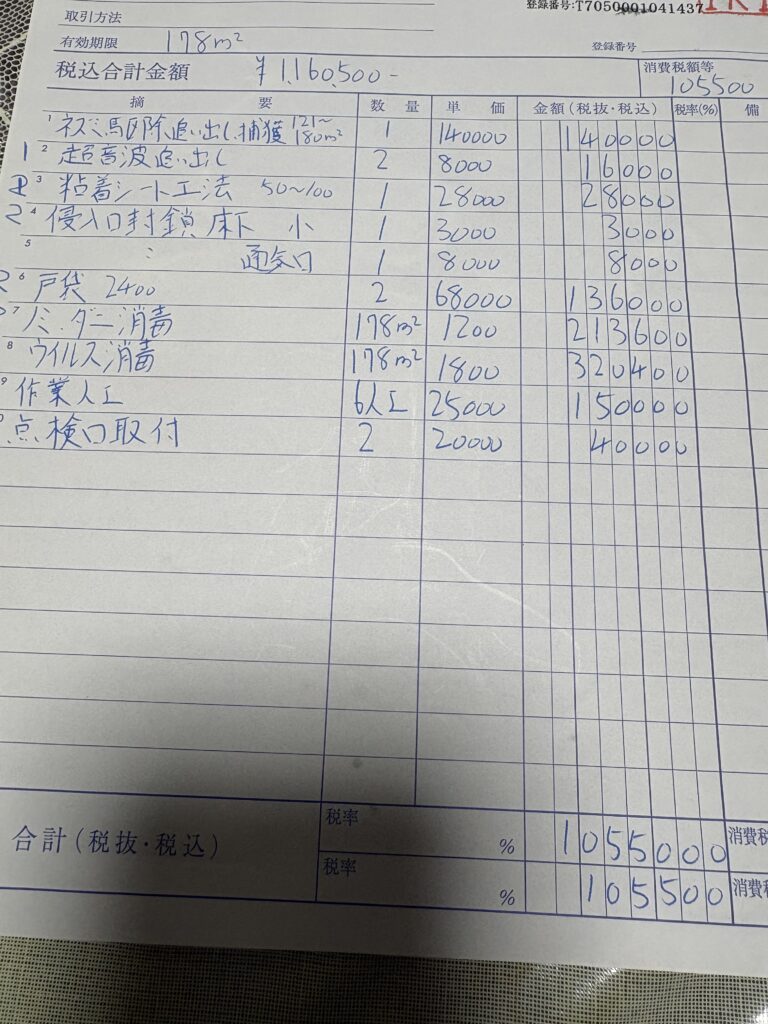 登録番号:T7050001041437
取引方法
有効期限 178m²
登録番号
税込合計金額 ¥1,160,500-
消費税額等 105500
摘要 数量 単価 金額(税抜・税込) 税率(%) 備
1 ネズミ駆除追い出し捕獲 121〜180m² 1 140000 140000
1 2 超音波追い出し 2 8000 16000
3 粘着シート工法 50〜100 1 28000 28000
2 4 侵入口封鎖 床下 小 1 3000 3000
5 〃 通気口 1 8000 8000
2 6 戸袋 2400 2 68000 136000
7 ノミ・ダニ消毒 178m² 1200 213600
8 ウイルス消毒 178m² 1800 320400
9 作業人工 6人工 25000 150000
点検口取付 2 20000 40000
合計(税抜・税込)
税率 % 1055000 消費税
税率 % 105500 消費税